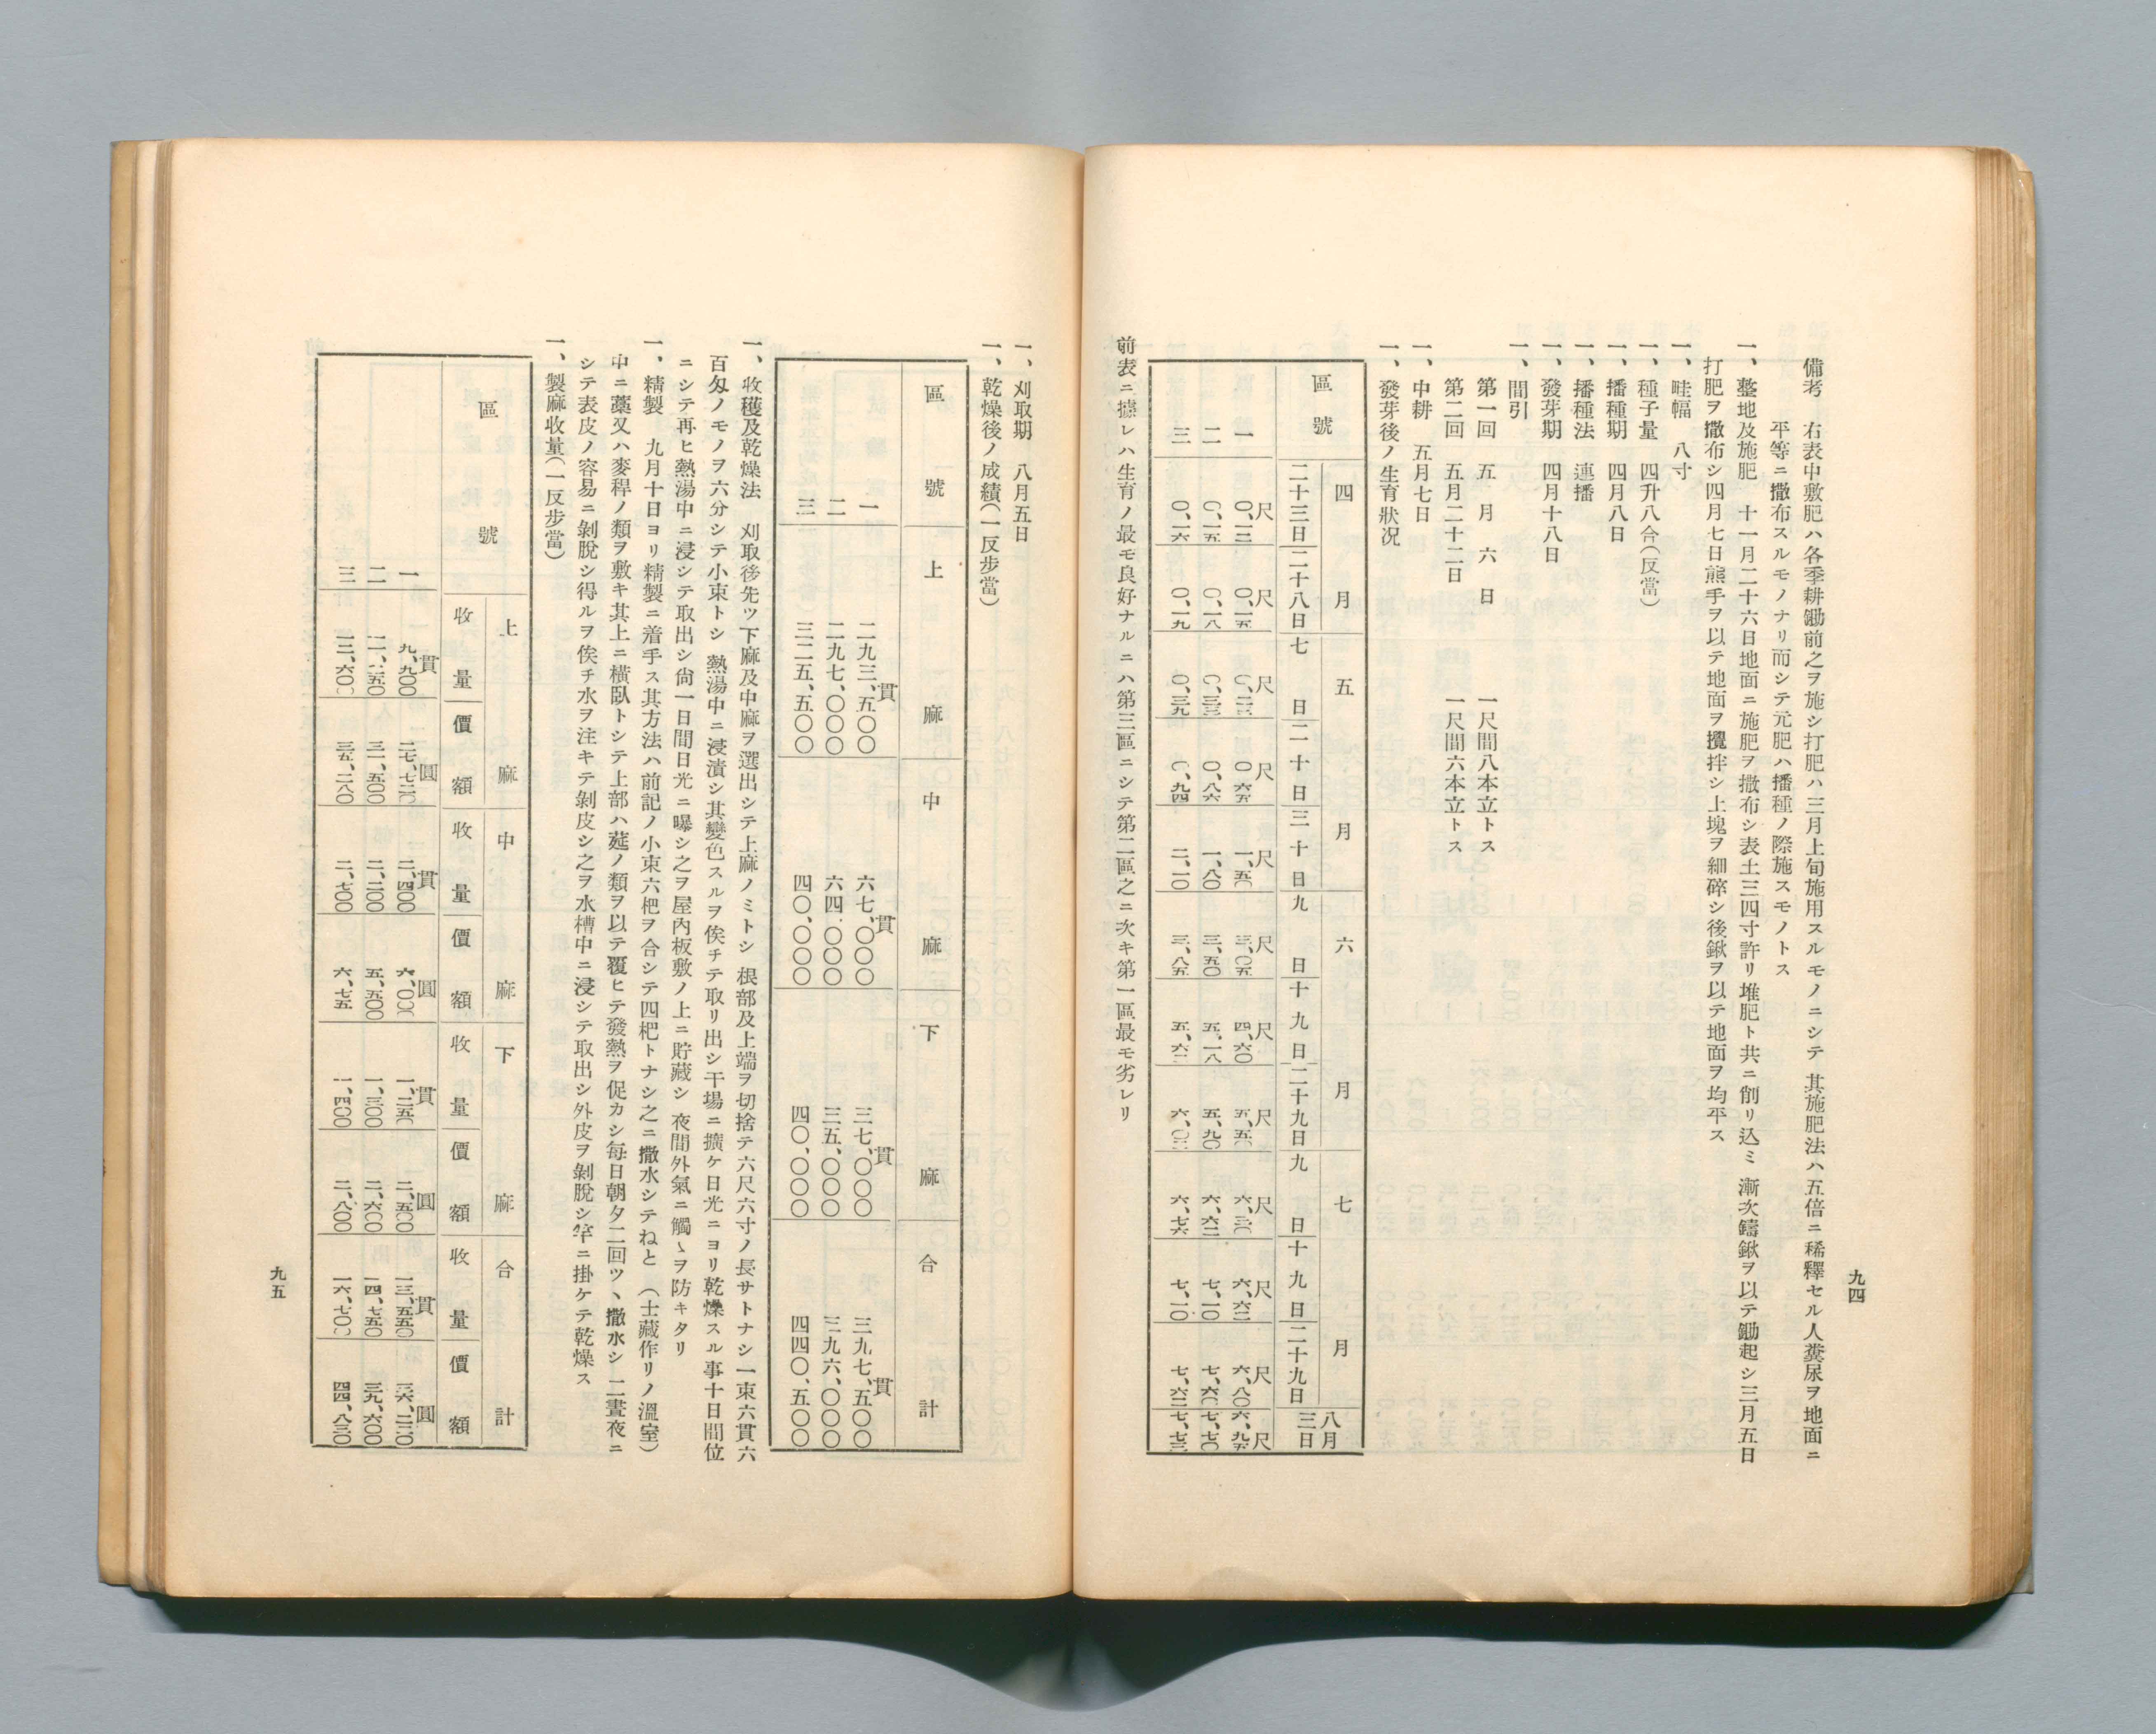 九四
備考　右表中敷肥ハ各季耕鋤前之ヲ施シ打肥ハ三月上旬施用スルモノニシテ其施肥法ハ五倍ニ稀釋セル人糞尿ヲ地面ニ
平等ニ撒布スルモノナリ而シテ元肥ハ播種ノ際施スモノトス
一、整地及施肥　十一月二十六日地面ニ施肥ヲ撒布シ表土三四寸許リ堆肥ト共ニ削リ込ミ漸次鑄鍬ヲ以テ鋤起シ三月五日
打肥ヲ撒布シ四月七日熊手ヲ以テ地面ヲ攪拌シ上塊ヲ細碎シ後鍬ヲ以テ地面ヲ均平ス
一、畦幅　八寸
一、種子量　四升八合(反當)
一、播種期　四月八日
一、播種法　連播
一、發芽期　四月十八日
一、間引
第一回　五月六日　一尺間八本立トス
第二回　五月二十二日　一尺間六本立トス
一、中耕　五月七日
一、發芽後ノ生育狀况
區號　四月　五月　六月　七月　八月三日
二十三日　二十八日　七日　二十日　三十日　九日　十九日　二十九日　九日　十九日　二十九日
尺　尺　尺　尺　尺　尺　尺　尺　尺　尺　尺　尺
一　〇、一二　〇、一五　〇、二三　〇、六五　一、五〇　三、〇五　四、六〇　五、五〇　六、三〇　六、六二　六、八〇　六、九五
二　〇、一五　〇、一八　〇、三三　〇、八六　一、八〇　三、五〇　五、一八　五、九〇　六、六二　七、一〇　七、六〇　七、七〇
三　〇、一六　〇、一九　〇、三九　〇、九四　二、一〇　三、八五　五、六二　六、〇三　六、七六　七、一〇　七、六二　七、七三
前表ニ據レハ生育ノ最モ良好ナルニハ第三區ニシテ第二區之ニ次キ第一區最モ劣レリ
一、刈取期　八月五日
一、乾燥後ノ成績(一反步當)
區號　上麻　中麻　下麻　合計
貫　貫　貫　貫
一　二九三、五〇〇　六七、〇〇〇　三七、〇〇〇　三九七、五〇〇
二　二九七、〇〇〇　六四、〇〇〇　三五、〇〇〇　三九六、〇〇〇
三　三二五、五〇〇　四〇、〇〇〇　四〇、〇〇〇　四四〇、五〇〇
一、收穫及乾燥法　刈取後先ツ下麻及中麻ヲ選出シテ上麻ノミトシ根部及上端ヲ切捨テ六尺六寸ノ長サトナシ一束六貫六
百匁ノモノヲ六分シテ小束トシ熱湯中ニ浸漬シ其變色スルヲ俟チテ取リ出シ干場ニ擴ケ日光ニヨリ乾燥スル事十日間位
ニシテ再ヒ熱湯中ニ浸シテ取出シ尙一日間日光ニ曝シ之ヲ屋內板敷ノ上ニ貯藏シ夜間外氣ニ觸ヽヲ防キタリ
一、精製　九月十日ヨリ精製ニ着手ス其方法ハ前記ノ小束六杷ヲ合シテ四杷トナシ之ニ撒水シテねと(土藏作リノ溫室)
中ニ藁又ハ麥稈ノ類ヲ敷キ其上ニ橫臥トシテ上部ハ莚ノ類ヲ以テ覆ヒテ發熱ヲ促カシ每日朝夕二回ツヽ撒水シ二晝夜ニ
シテ表皮ノ容易ニ剝脫シ得ルヲ俟チ水ヲ注キテ剝皮シ之ヲ水槽中ニ浸シテ取出シ外皮ヲ剝脫シ竿ニ掛ケテ乾燥ス
一、製麻收量(一反步當)
區號　上麻　中麻　下麻　合計
收量　價額　收量　價額　收量　價額　收量　價額
貫　圓　貫　圓　貫　圓　貫　圓
一　九、九〇〇　二七、七二〇　二、四〇〇　六、〇〇〇　一、二五〇　二、五〇〇　一三、五五〇　三六、二二〇
二　一一、二五〇　三一、五〇〇　二、二〇〇　五、五〇〇　一、三〇〇　二、六〇〇　一四、七五〇　三九、六〇〇
三　一二、六〇〇　三五、二八〇　二、七〇〇　六、七五　一、四〇〇　二、八〇〇　一六、七〇〇　四四、八三〇
九五